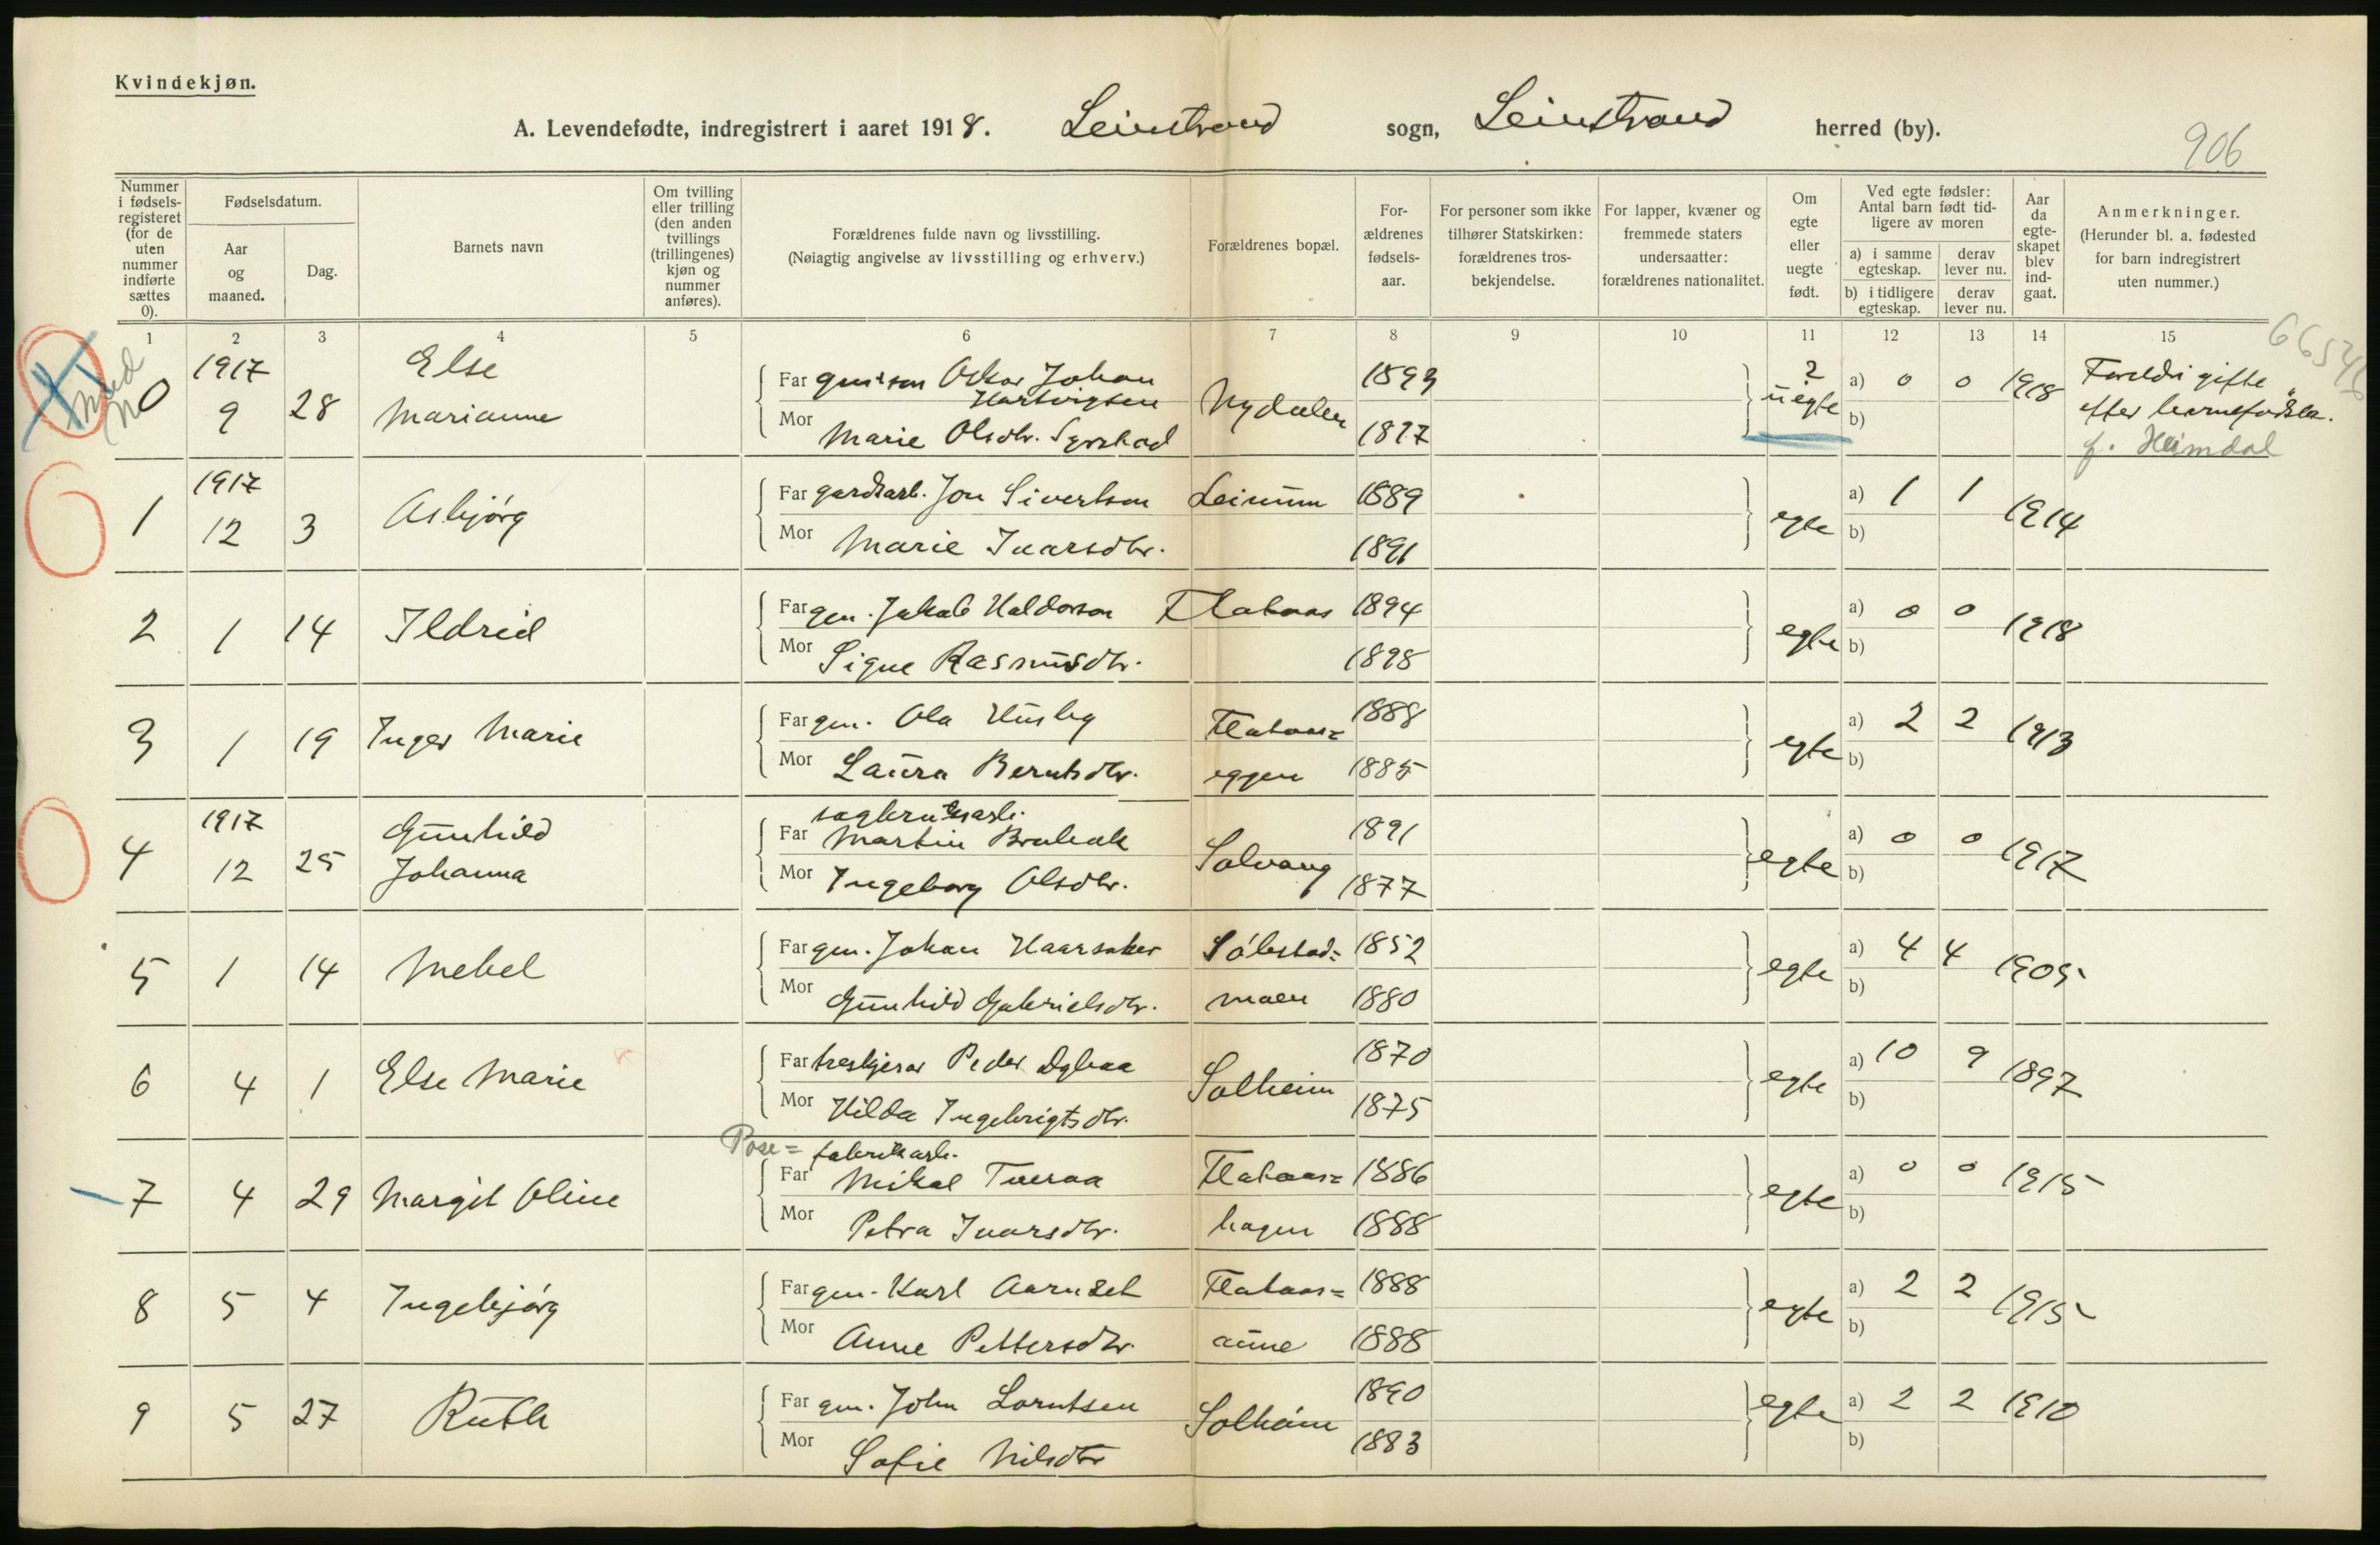 Kvindekjøn.
A. Levendefødte, indregistrert i aaret 1918. Leinstrand sogn, Leinstrand herred (by).
906
Nummer i fødsels-registeret (for de uten nummer indførte sættes 0).
Fødselsdatum.
Aar og maaned.
Dag.
Barnets navn
Om tvilling eller trilling (den anden tvillings (trillingenes) kjøn og nummer anføres).
Forældrenes fulde navn og livsstilling.
(Nøiagtig angivelse av livsstilling og erhverv.)
Forældrenes bopæl.
For-ældrenes fødsels-aar.
For personer som ikke tilhører Statskirken: forældrenes tros-bekjendelse.
For lapper, kvæner og fremmede staters undersaatter: forældrenes nationalitet.
Om egte eller uegte født.
Ved egte fødsler: Antal barn født tid-ligere av moren
a) i samme egteskap.
derav lever nu.
b) i tidligere egteskap.
derav lever nu.
Aar da egte-skapet blev ind-gaat.
Anmerkninger.
(Herunder bl. a. fødested for barn indregistrert uten nummer.)
1 2 3 4 5 6 7 8 9 10 11 12 13 14 15
0 1917 9 28 Else Marianne
Far Oskar Johan Hartvigsen Nydalen 1893 ? uegte a) 0 0 1918 Foreldri gifte efter barnefødsla.
Mor Marie Olsdtr. 1897 b) f. Heimdal
1 1917 12 3 Asbjórg
Far gardsarb. Jon Sivertson Leinum 1889 egte a) 1 1 1914
Mor Marie Ivarsdtr. 1891 b)
2 1 14 Ildrid
Far gm. Jakob Haldorson Flataas 1894 egte a) 0 0 1918
Mor Signe Rasmusdtr. 1898 b)
3 1 19 Inger Marie
Far gm. Ola Husby Flataas= 1888 egte a) 2 2 1913
Mor Laura Berntsdtr. eggen 1885 b)
4 1917 12 25 Gunhild Johanna
sagbruksarb.
Far Martin Solvang 1891 egte a) 0 0 1917
Mor Ingeborg Olsdtr. 1877 b)
5 1 14 Mebel
Far gm. Johan Haarsaker Sólestad= 1852 egte a) 4 4 1905
Mor Gunhild Gabrielsdtr. moen 1880 b)
6 4 1 Else Marie
Far treskjerar Peder Dybaa Solheim 1870 egte a) 10 9 1897
Mor Hilda Ingebrigtsdtr. 1875 b)
Pose= fabrikarb.
7 4 29 Margit Oline
Far Mikal Tveraa Flataas= 1886 egte a) 0 0 1915
Mor Petra Ivarsdtr. hagen 1888 b)
8 5 4 Ingebjórg
Far gm. Karl Aarnset Flataas= 1888 egte a) 2 2 1915
Mor Anne Pettersdtr. aune 1888 b)
9 5 27 Ruth
Far gm. John Lorntsen Solheim 1890 egte a) 2 2 1910
Mor Sofie Nilsdtr 1883 b)